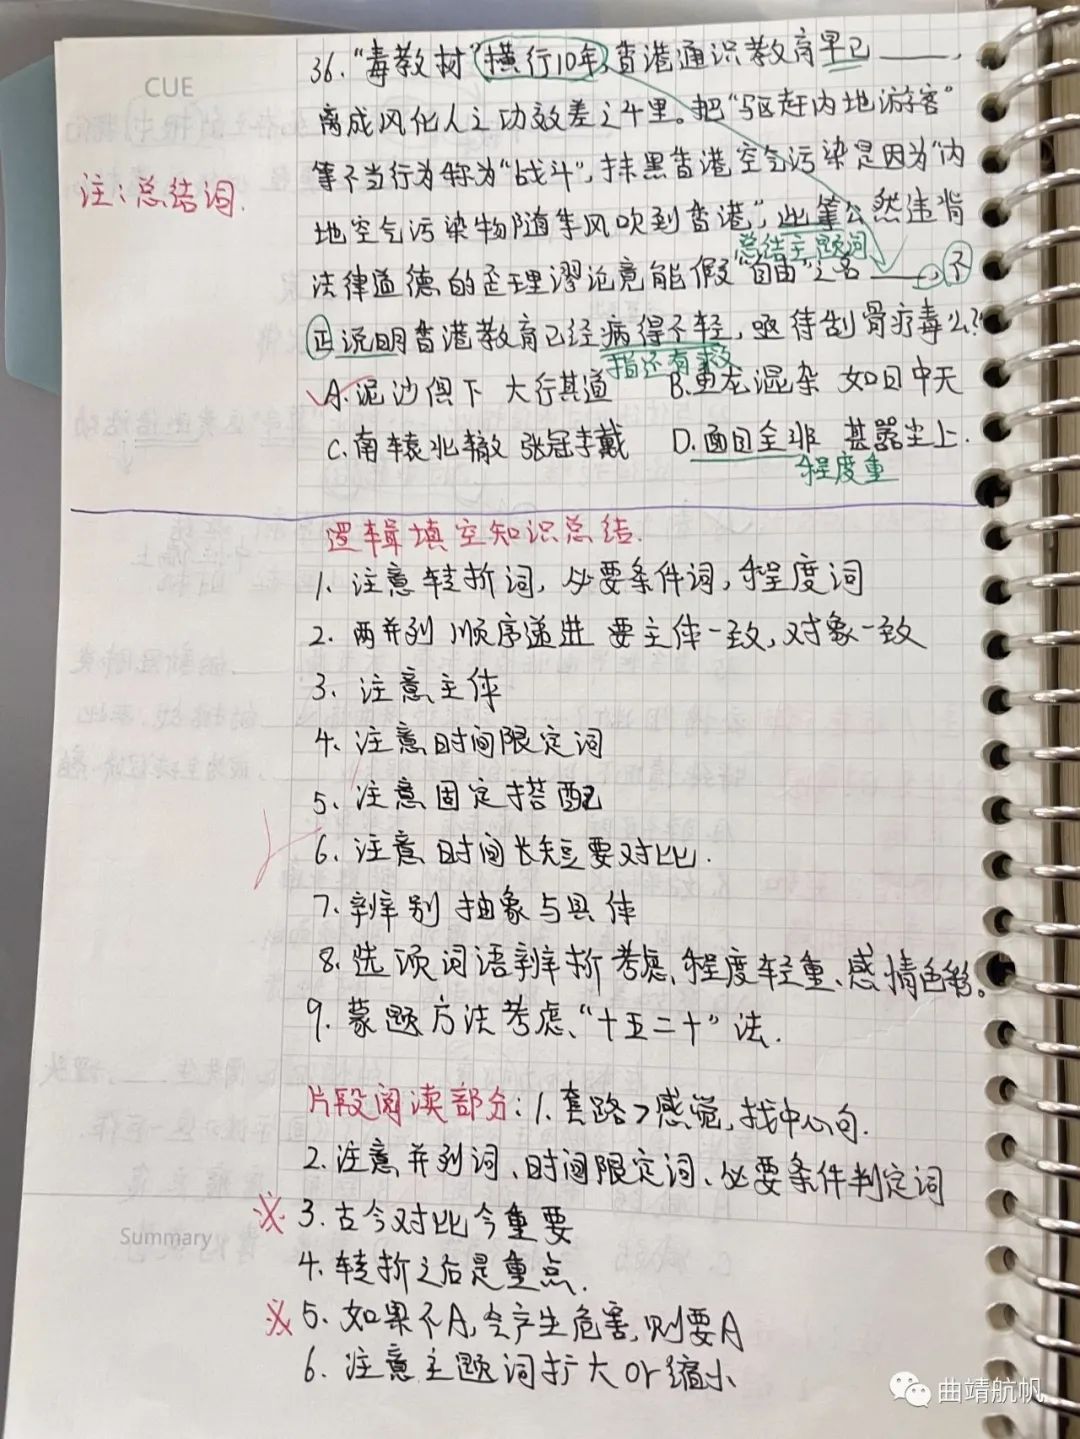 CUE
36.“毒教材”横行10年,香港通识教育早已____,
离成风化人之功效差之千里。把“驱赶内地游客”
等不当行为称为“战斗”,抹黑香港空气污染是因为“内
注:总结词.
地空气污染物随季风吹到香港”,此等公然违背
总结主题词
法律道德的歪理谬论竟能假“自由”之名____,不
正说明香港教育已经病得不轻,亟待刮骨疗毒么?
指还有救
A.泥沙俱下 大行其道 B.鱼龙混杂 如日中天
C.南辕北辙 张冠李戴 D.面目全非 甚嚣尘上.
程度重
逻辑填空知识总结.
1. 注意转折词,必要条件词,程度词
2. 两并列 顺序递进 要主体一致,对象一致
3. 注意主体
4. 注意时间限定词
5. 注意固定搭配
6. 注意时间长短要对比.
7. 辨别抽象与具体
8. 选项词语辨析考虑,程度轻重、感情色彩。
9. 蒙题方法考虑、“十五二十”法.
片段阅读部分:1. 套路>感觉,找中心句.
2. 注意并列词、时间限定词、必要条件判定词
※ 3. 古今对比今重要
Summary
4. 转折之后是重点.
※ 5. 如果不A,会产生危害,则要A
6. 注意主题词扩大or缩小
曲靖航帆